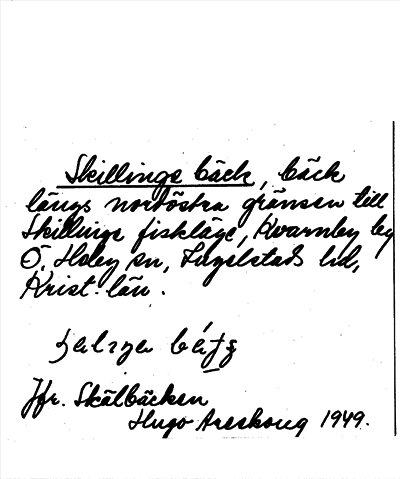 Skillinge bäck, bäck
längs nordöstra gränsen till
Skillinge fiskläge, Kvarnby by
Ö. Hoby sn, Ingelstads hd,
Krist. län.
Jfr. Skälbäcken
Hugo Areskoug 1949.